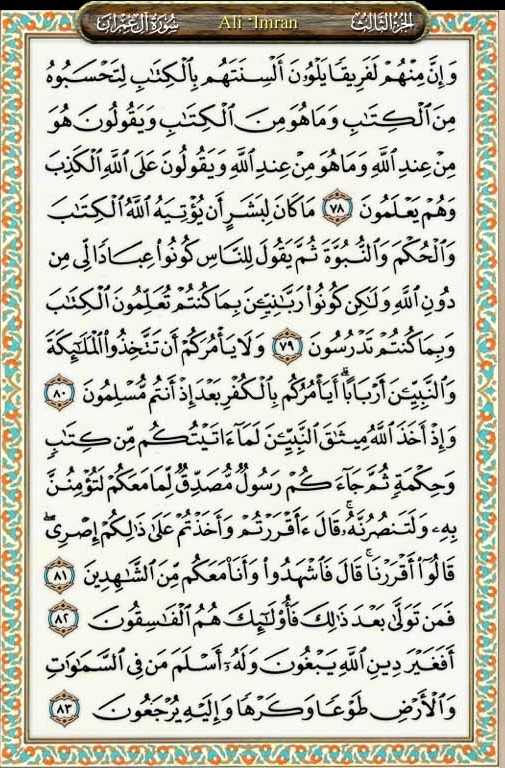 الجزء الثالث
Ali 'Imran
سورة آل عمران
وَإِنَّ مِنْهُمْ لَفَرِيقًا يَلْوُۥنَ أَلْسِنَتَهُم بِالْكِتَٰبِ لِتَحْسَبُوهُ
مِنَ الْكِتَٰبِ وَمَا هُوَ مِنَ الْكِتَٰبِ وَيَقُولُونَ هُوَ
مِنْ عِندِ اللَّهِ وَمَا هُوَ مِنْ عِندِ اللَّهِ وَيَقُولُونَ عَلَى اللَّهِ الْكَذِبَ
وَهُمْ يَعْلَمُونَ ٧٨ مَا كَانَ لِبَشَرٍ أَن يُؤْتِيَهُ اللَّهُ الْكِتَٰبَ
وَالْحُكْمَ وَالنُّبُوَّةَ ثُمَّ يَقُولَ لِلنَّاسِ كُونُوا عِبَادًا لِّي مِن
دُونِ اللَّهِ وَلَٰكِن كُونُوا رَبَّٰنِيِّۧنَ بِمَا كُنتُمْ تُعَلِّمُونَ الْكِتَٰبَ
وَبِمَا كُنتُمْ تَدْرُسُونَ ٧٩ وَلَا يَأْمُرَكُمْ أَن تَتَّخِذُوا الْمَلَٰٓئِكَةَ
وَالنَّبِيِّۧنَ أَرْبَابًا ۗ أَيَأْمُرُكُم بِالْكُفْرِ بَعْدَ إِذْ أَنتُم مُّسْلِمُونَ ٨٠
وَإِذْ أَخَذَ اللَّهُ مِيثَٰقَ النَّبِيِّۧنَ لَمَآ ءَاتَيْتُكُم مِّن كِتَٰبٍ
وَحِكْمَةٍ ثُمَّ جَآءَكُمْ رَسُولٌ مُّصَدِّقٌ لِّمَا مَعَكُمْ لَتُؤْمِنُنَّ
بِهِۦ وَلَتَنصُرُنَّهُۥ ۚ قَالَ ءَأَقْرَرْتُمْ وَأَخَذْتُمْ عَلَىٰ ذَٰلِكُمْ إِصْرِي ۖ
قَالُوٓا أَقْرَرْنَا ۚ قَالَ فَاشْهَدُوا وَأَنَا۠ مَعَكُم مِّنَ الشَّٰهِدِينَ ٨١
فَمَن تَوَلَّىٰ بَعْدَ ذَٰلِكَ فَأُولَٰٓئِكَ هُمُ الْفَٰسِقُونَ ٨٢
أَفَغَيْرَ دِينِ اللَّهِ يَبْغُونَ وَلَهُۥٓ أَسْلَمَ مَن فِي السَّمَٰوَٰتِ
وَالْأَرْضِ طَوْعًا وَكَرْهًا وَإِلَيْهِ يُرْجَعُونَ ٨٣